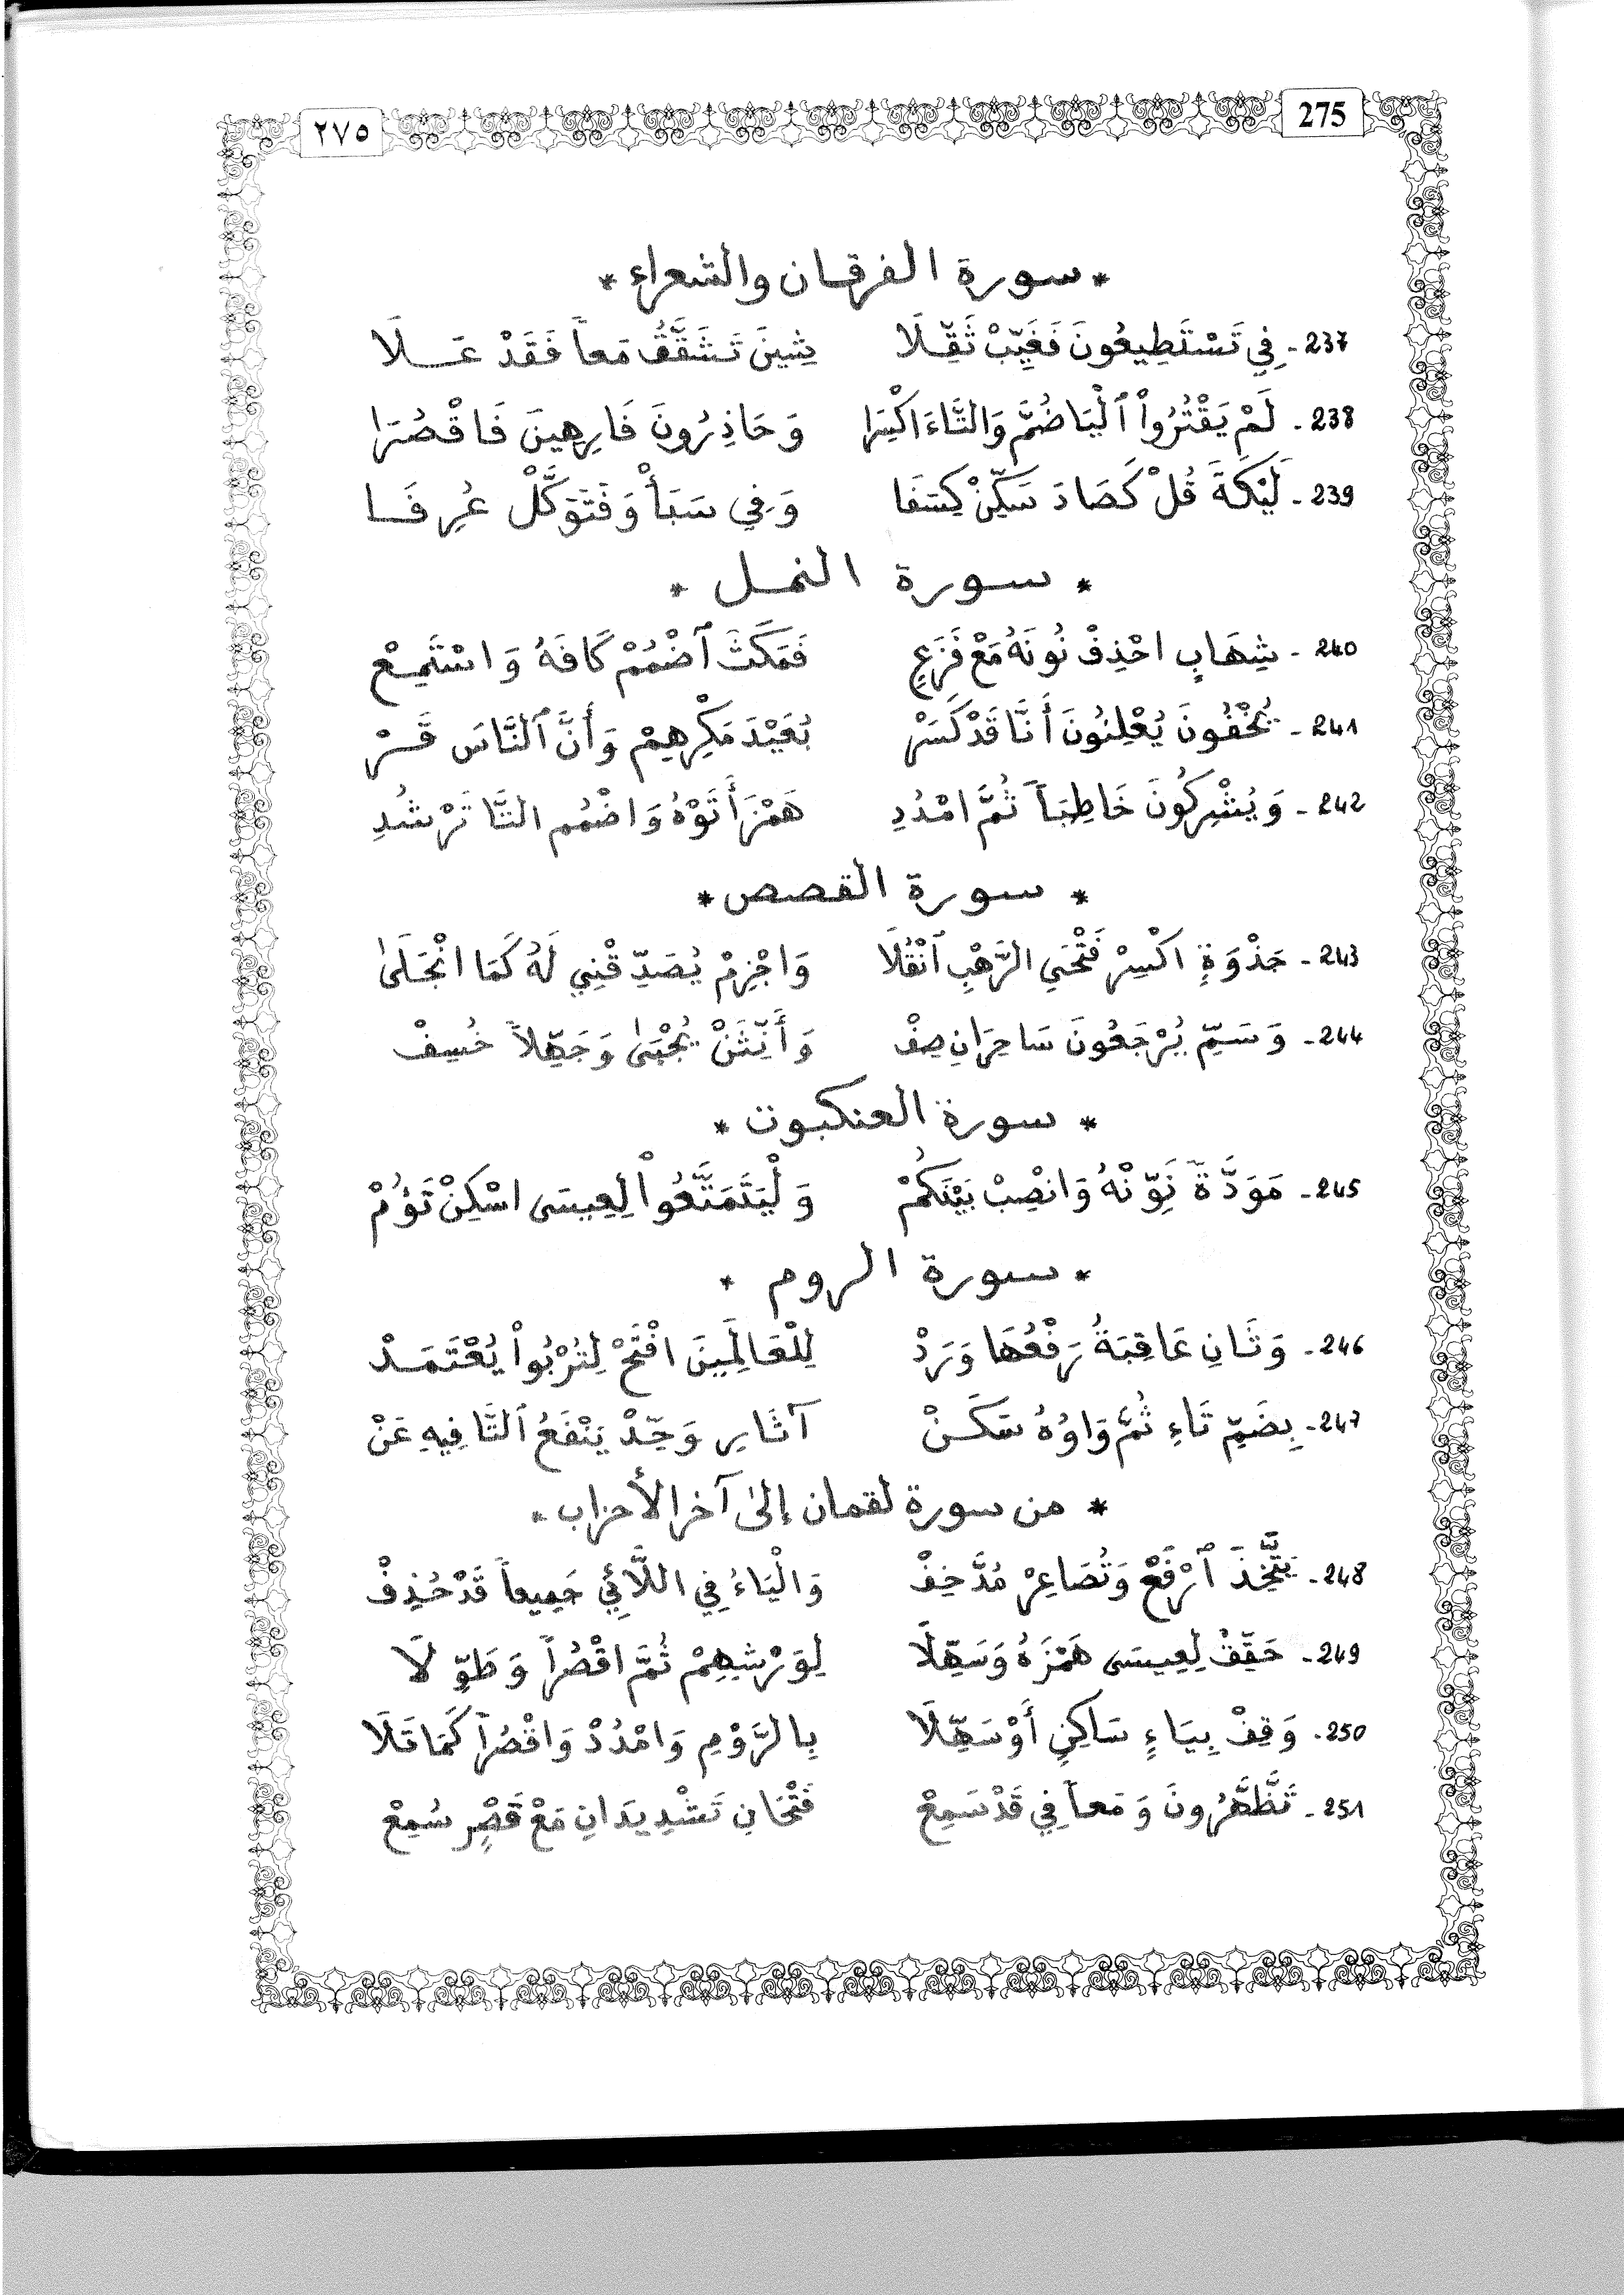 ٢٧٥ 275
* سورة الفرقان والشعراء *
237 - فِي تَسْتَطِيعُونَ فَغَيِّبْ ثَقِّلَا شِينَ تَشَقَّقُ مَعاً فَقَدْ عَلَا
238 - لَمْ يَقْتُرُواْ ٱلْيَا ضُمَّ وَالتَّاءَ اكْسِرَا وَحَاذِرُونَ فَارِهِينَ فَاقْصُرَا
239 - لَيْكَةَ قُلْ كَصَادَ سَكِّنْ كِسَفَا وَفِي سَبَأْ وَفَتَوَكَّلْ عُرِفَا
* سورة النمل *
240 - شِهَابِ احْذِفْ نُونَهُ مَعْ فَزَعِ فَمَكَثَ ٱضْمُمْ كَافَهُ وَاسْتَمِعْ
241 - يُخْفُونَ يُعْلِنُونَ أَنَّا قَدْ كَسَرْ بُعَيْدَ مَكْرِهِمْ وَأَنَّ ٱلنَّاسَ قَرْ
242 - وَيُشْرِكُونَ خَاطِباً ثُمَّ امْدُدِ هَمْزَ أَتَوْهُ وَاضْمُمِ التَّا تَرْشُدِ
* سورة القصص *
243 - جَذْوَةٍ اكْسِرْ فَتْحَيِ الرَّهْبِ ٱنْقُلَا وَاجْزِمْ يُصَدِّقْنِي لَهُ كَمَا انْجَلَىٰ
244 - وَسَمِّ يُرْجَعُونَ سَاحِرَانِ صِفْ وَأَنِّثَنْ يُجْبَىٰ وَجَهِّلاً خُسِفْ
* سورة العنكبوت *
245 - مَوَدَّةً نَوِّنْهُ وَانْصِبْ بَيْنَكُمْ وَلْيَتَمَتَّعُواْ لِعِيسَى اسْكِنْ تَؤُمْ
* سورة الروم *
246 - وَثَانِ عَاقِبَةُ رَفْعُهَا وَرَدْ لِلْعَالَمِينَ افْتَحْ لِتُرْبُواْ يُعْتَمَدْ
247 - بِضَمِّ تَاءِ ثُمَّ وَاوُهُ سَكَنْ آثَارِ وَحِّدْ يَنْفَعُ ٱلتَّا فِيهِ عَنْ
* من سورة لقمان إلىٰ آخر الأحزاب *
248 - يَتَّخِذَ ٱرْفَعْ وَتُصَاعِرْ مُدَّ خِفْ وَالْيَاءُ فِي اللَّائِي جَمِيعاً قَدْ حُذِفْ
249 - حَقِّقْ لِعِيسَى هَمْزَهُ وَسَهِّلَا لِوَرْشِهِمْ ثُمَّ اقْصُراً وَطَوِّلَا
250 - وَقِفْ بِيَاءٍ سَاكِنٍ أَوْ سَهِّلَا بِالرَّوْمِ وَامْدُدْ وَاقْصُراً كَمَا تَلَا
251 - تَظَّهَّرُونَ وَمَعاً فِي قَدْ سَمِعْ فَتْحَانِ تَشْدِيدَانِ مَعْ قَصْرٍ سُمِعْ